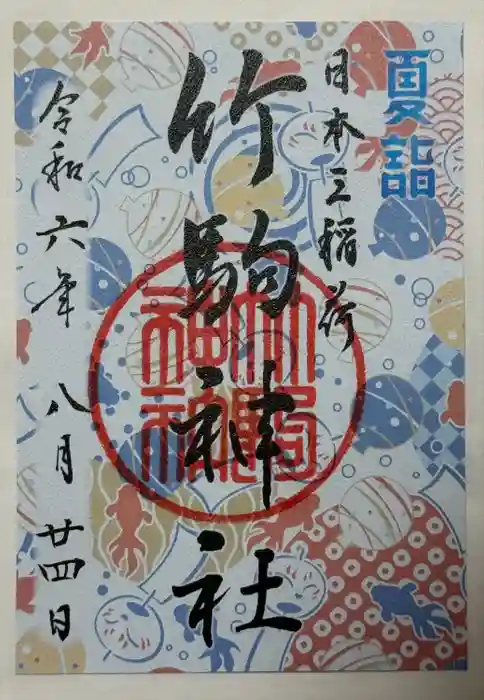 夏詣
日本三稲荷
竹駒神社
竹駒神社
令和六年 八月 廿四日